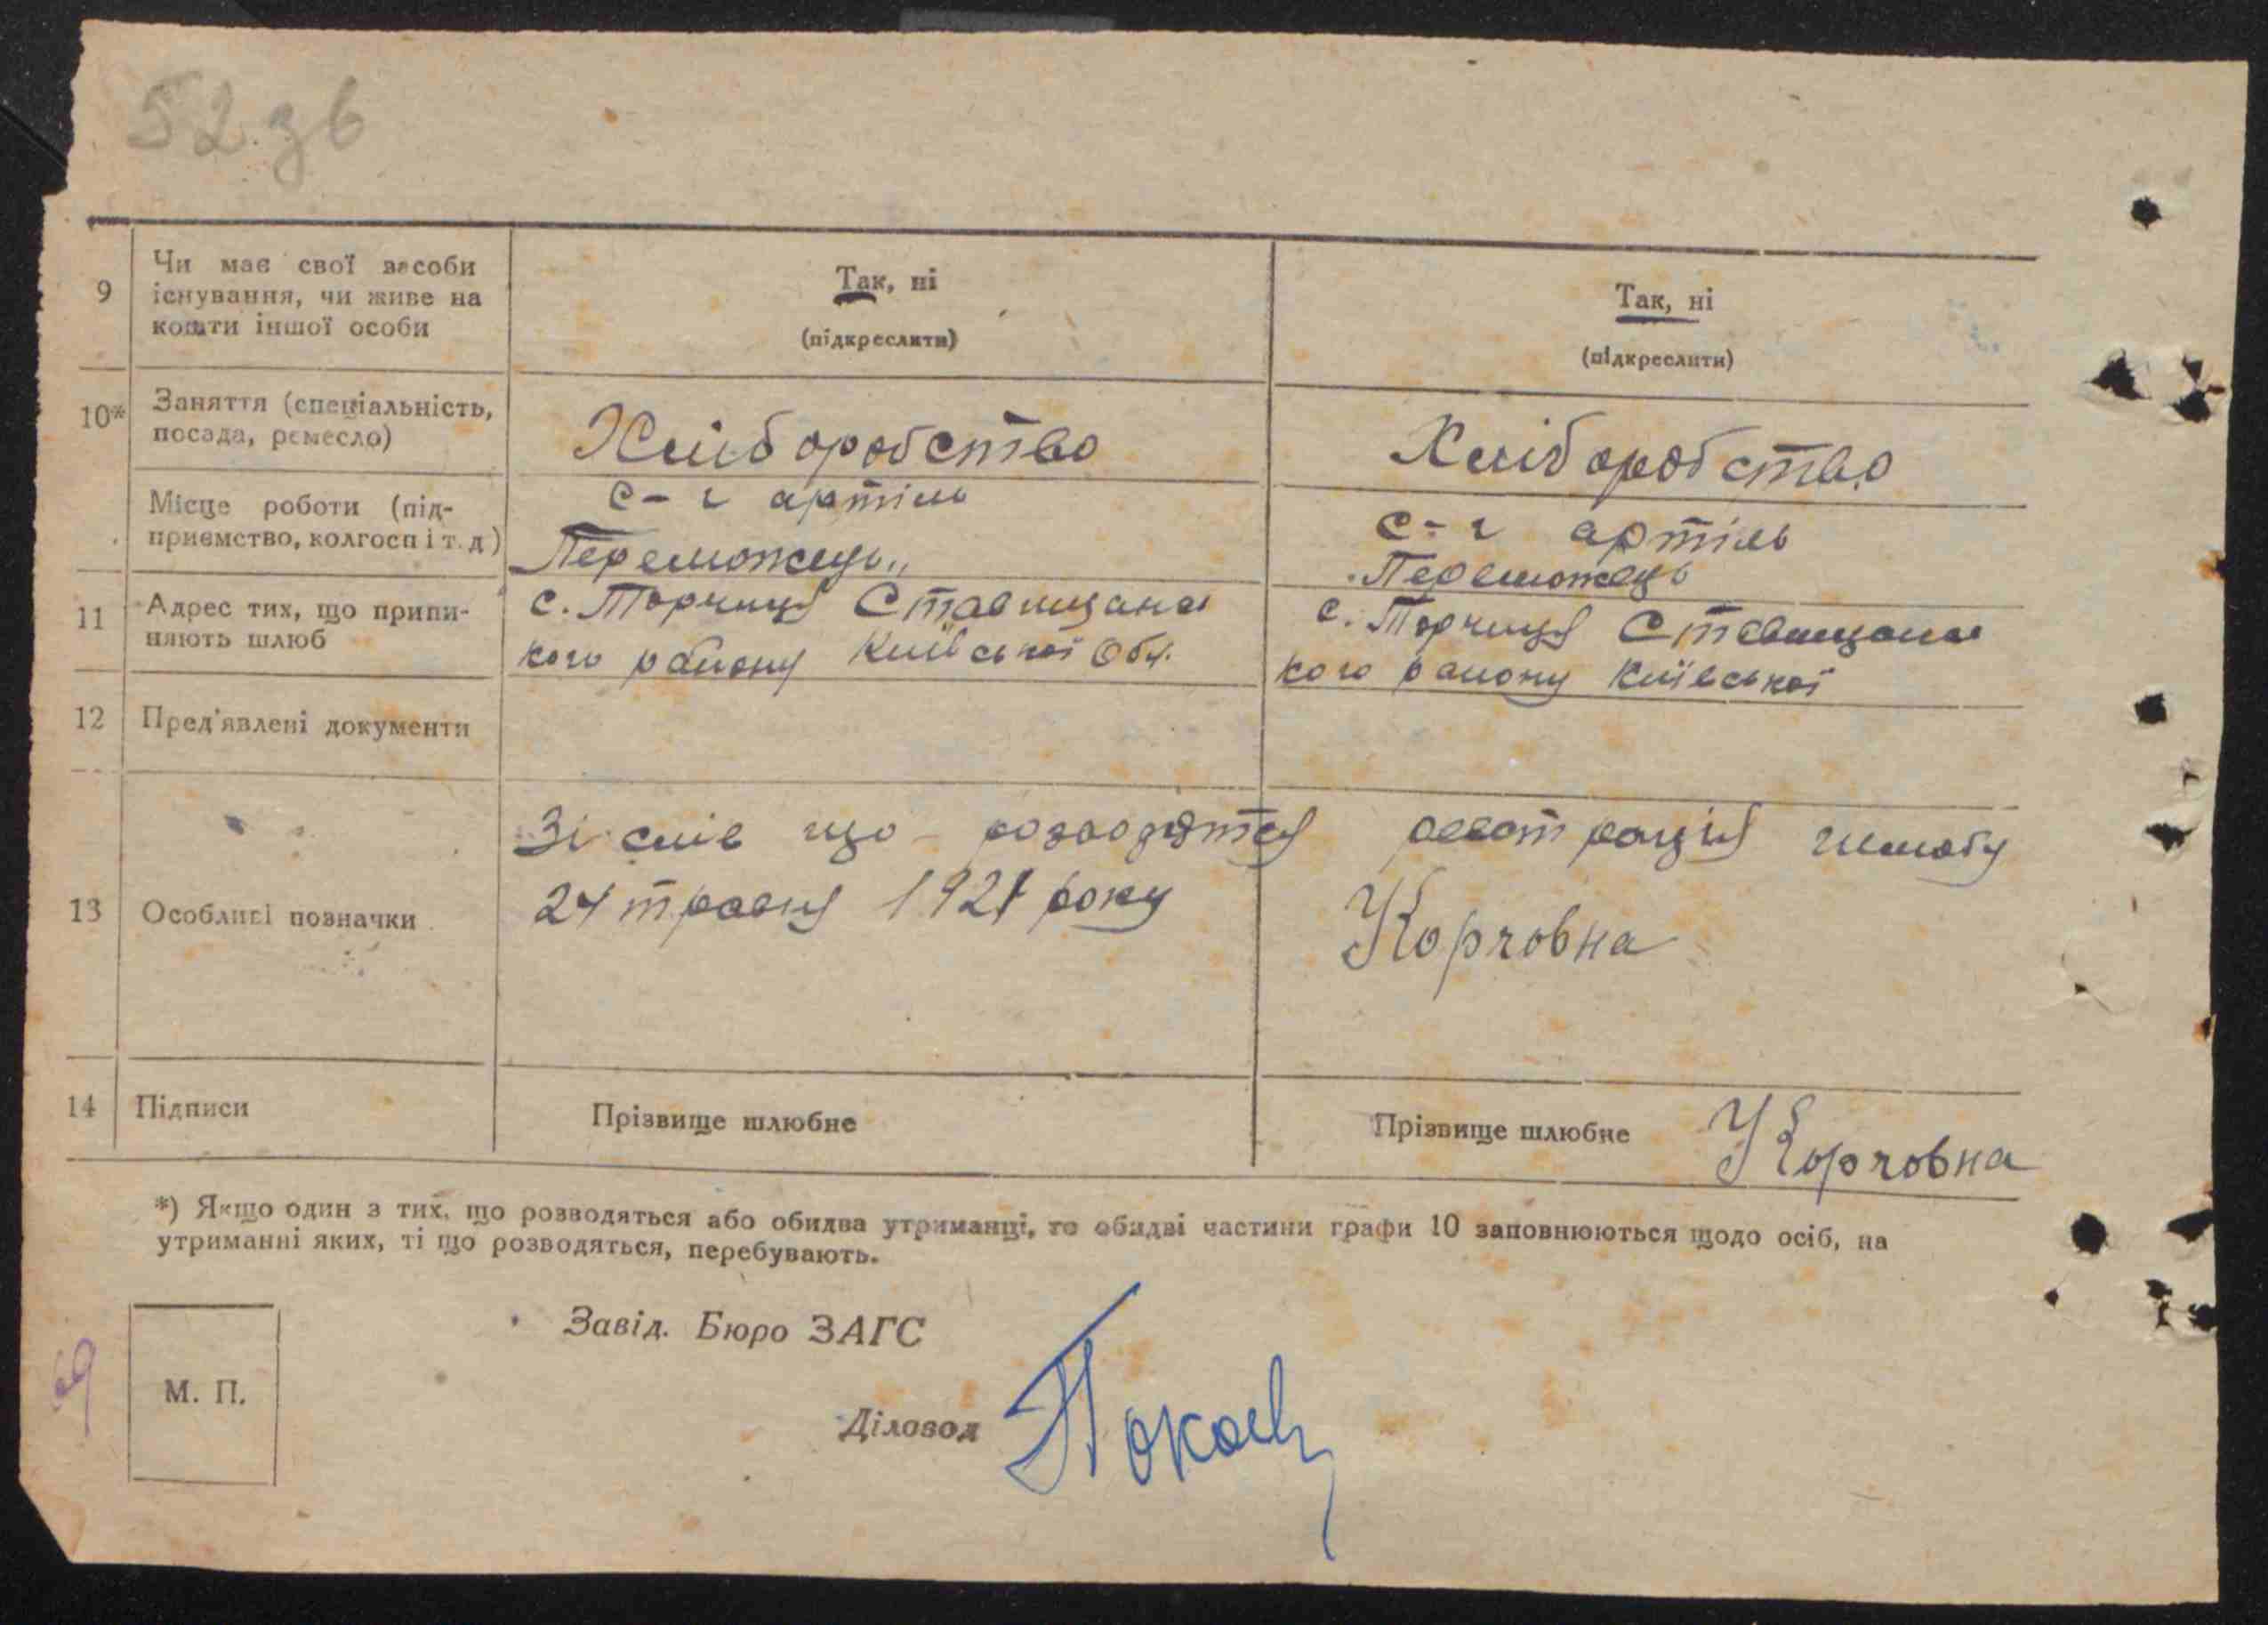 52 зв
9
Чи має свої засоби
існування, чи живе на
кошти іншої особи
Так, ні
(підкреслити)
Так, ні
(підкреслити)
10*
Заняття (спеціальність,
посада, ремесло)
Хліборобство
Хліборобство
Місце роботи (під-
приємство, колгосп і т. д)
с-г артіль
Переможець"
с-г артіль
Переможець
11
Адрес тих, що припи-
няють шлюб
с. Торчиця Ставищанс
кого району Київської Обл.
с. Торчиця Ставищанс
кого району Київської
12
Пред'явлені документи
13
Особливі позначки
Зі слів що розводятся реєстрація шлюбу
24 травня 1921 року
Корчовна
14
Підписи
Прізвище шлюбне
Прізвище шлюбне Корчовна
*) Якщо один з тих, що розводяться або обидва утриманці, то обидві частини графи 10 заповнюються щодо осіб, на
утриманні яких, ті що розводяться, перебувають.
Завід. Бюро ЗАГС
М. П.
Діловод